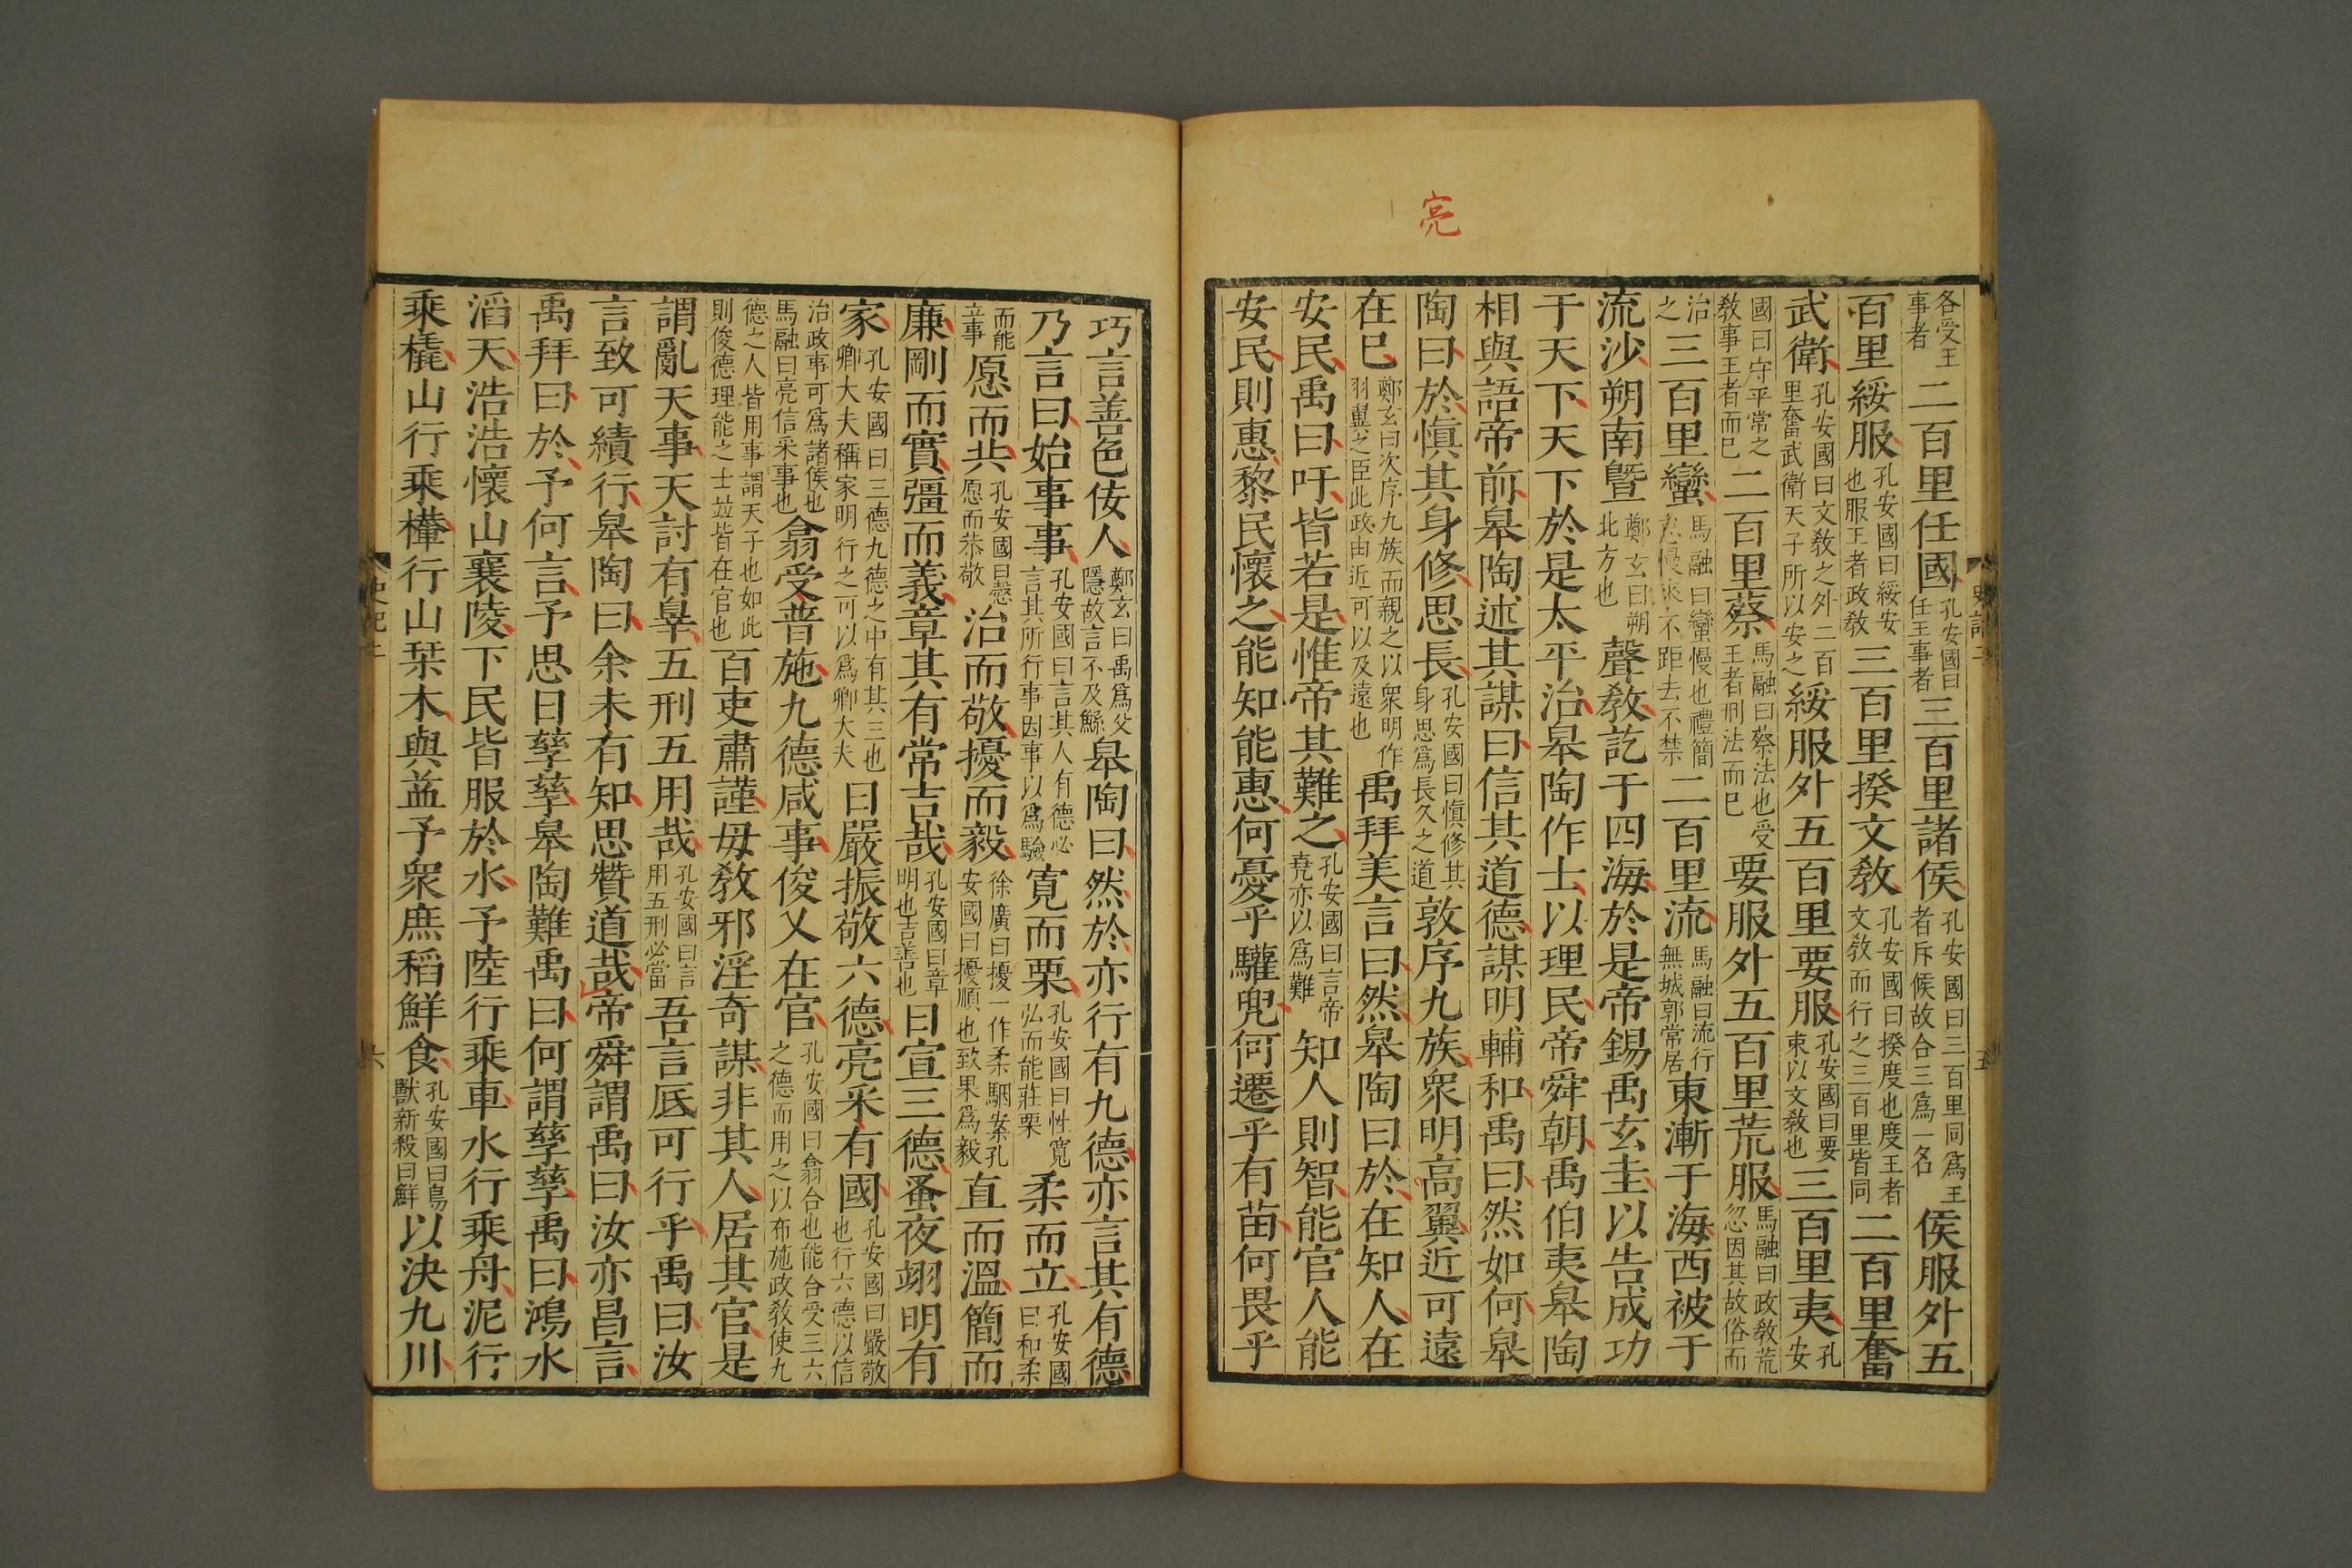 亮
各受王事者二百里任國孔安國曰任王事者三百里諸侯孔安國曰三百里同爲王者斥候故合三爲一名侯服外五
百里綏服孔安國曰綏安也服王者政教三百里揆文教孔安國曰揆度也度王者文教而行之三百里皆同二百里奮
武衛孔安國曰文教之外二百里奮武衛天子所以安之綏服外五百里要服孔安國曰要束以文教也三百里夷孔安
國曰守平常之教事王者而已二百里蔡馬融曰蔡法也受王者刑法而已要服外五百里荒服馬融曰政教荒忽因其故俗而
治之三百里蠻馬融曰蠻慢也禮簡怠慢來不距去不禁二百里流馬融曰流行無城郭常居東漸于海西被于
流沙朔南曁鄭玄曰朔北方也聲教訖于四海於是帝錫禹玄圭以告成功
于天下天下於是太平治皋陶作士以理民帝舜朝禹伯夷皋陶
相與語帝前皋陶述其謀曰信其道德謀明輔和禹曰然如何皋
陶曰於愼其身修思長孔安國曰愼修其身思爲長久之道敦序九族衆明高翼近可遠
在已鄭玄曰次序九族而親之以衆明作羽翼之臣此政由近可以及遠也禹拜美言曰然皋陶曰於在知人在
安民禹曰吁皆若是惟帝其難之孔安國曰言帝堯亦以爲難知人則智能官人能
安民則惠黎民懷之能知能惠何憂乎驩兜何遷乎有苗何畏乎
史記二
五
巧言善色佞人鄭玄曰禹爲父隱故言不及鯀皋陶曰然於亦行有九德亦言其有德
乃言曰始事事孔安國曰言其人有德必言其所行事因事以爲驗寬而栗孔安國曰性寬弘而能莊栗柔而立孔安國曰和柔
而能立事愿而共孔安國曰愨愿而恭敬治而敬擾而毅徐廣曰擾一作柔駰案孔安國曰擾順也致果爲毅直而溫簡而
廉剛而實彊而義章其有常吉哉孔安國曰章明也吉善也日宣三德蚤夜翊明有
家孔安國曰三德九德之中有其三也卿大夫稱家明行之可以爲卿大夫日嚴振敬六德亮采有國孔安國曰嚴敬也行六德以信
治政事可爲諸侯也馬融曰亮信采事也翕受普施九德咸事俊乂在官孔安國曰翕合也能合受三六之德而用之以布施政教使九
德之人皆用事謂天子也如此則俊德理能之士並皆在官也百吏肅謹毋教邪淫奇謀非其人居其官是
謂亂天事天討有辠五刑五用哉孔安國曰言用五刑必當吾言厎可行乎禹曰汝
言致可績行皋陶曰余未有知思贊道哉帝舜謂禹曰汝亦昌言
禹拜曰於予何言予思日孳孳皋陶難禹曰何謂孳孳禹曰鴻水
滔天浩浩懷山襄陵下民皆服於水予陸行乘車水行乘舟泥行
乘橇山行乘檋行山栞木與益予衆庶稻鮮食孔安國曰鳥獸新殺曰鮮以決九川
史記二
六